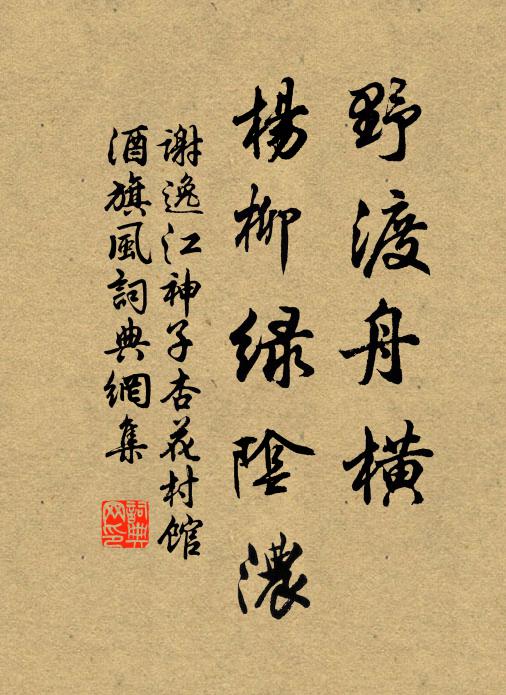 野渡舟橫
楊柳绿陰濃
謝逸江神子杏花村館
酒旗風詞典網集
詞典网印